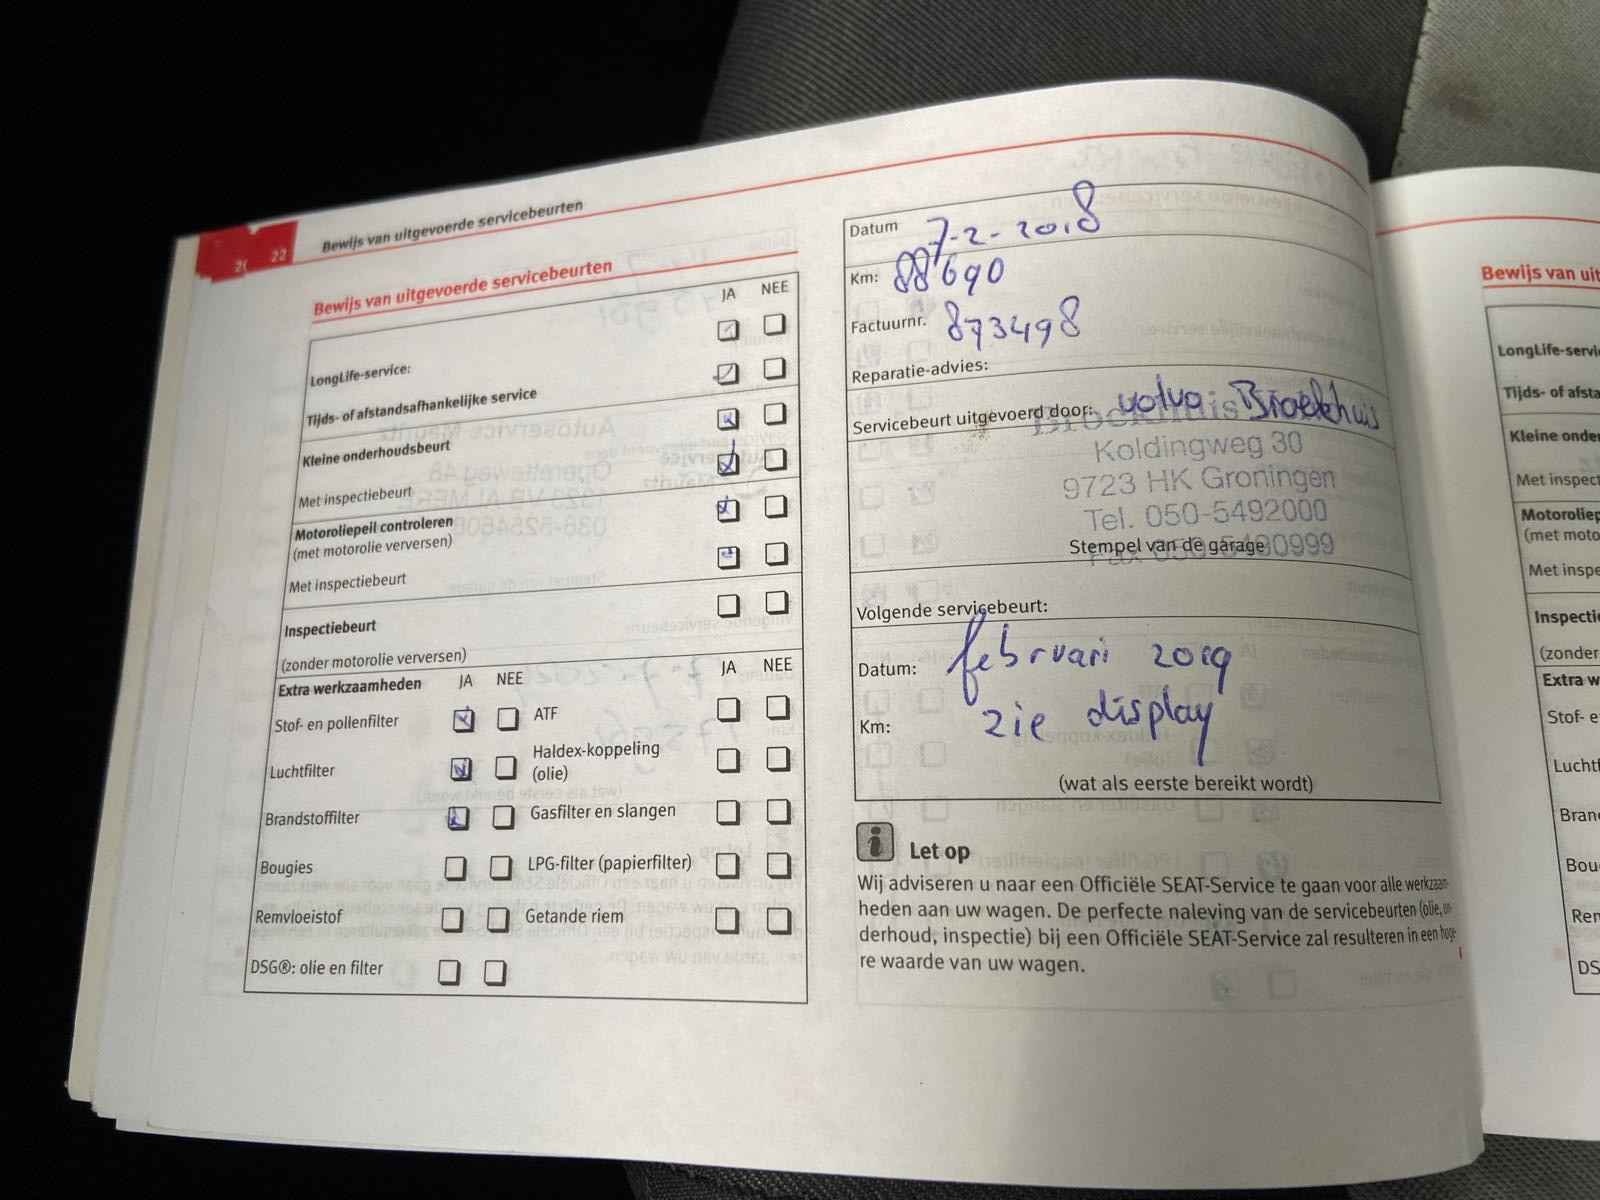 22
Bewijs van uitgevoerde servicebeurten
Bewijs van uitgevoerde servicebeurten
JA NEE
LongLife-service:
Tijds- of afstandsafhankelijke service
Kleine onderhoudsbeurt
Met inspectiebeurt
Motoroliepeil controleren
(met motorolie verversen)
Met inspectiebeurt
Inspectiebeurt
(zonder motorolie verversen)
Extra werkzaamheden JA NEE JA NEE
Stof- en pollenfilter ATF
Luchtfilter Haldex-koppeling
(olie)
Brandstoffilter Gasfilter en slangen
Bougies LPG-filter (papierfilter)
Remvloeistof Getande riem
DSG®: olie en filter
Datum 7-2-2018
Km: 88690
Factuurnr. 873498
Reparatie-advies:
Servicebeurt uitgevoerd door: Volvo Broekhuis
Broekhuis
Koldingweg 30
9723 HK Groningen
Tel. 050-5492000
Stempel van de garage
Volgende servicebeurt:
Datum: februari 2019
Km: zie display
(wat als eerste bereikt wordt)
Let op
Wij adviseren u naar een Officiële SEAT-Service te gaan voor alle werkzaam-
heden aan uw wagen. De perfecte naleving van de servicebeurten (olie, on-
derhoud, inspectie) bij een Officiële SEAT-Service zal resulteren in een hoge-
re waarde van uw wagen.
Bewijs van uit
LongLife-servi
Tijds- of afsta
Kleine onder
Met inspect
Motoroliep
(met moto
Met inspe
Inspectie
(zonder
Extra w
Stof- e
Luchtf
Bran
Bou
Rem
DS